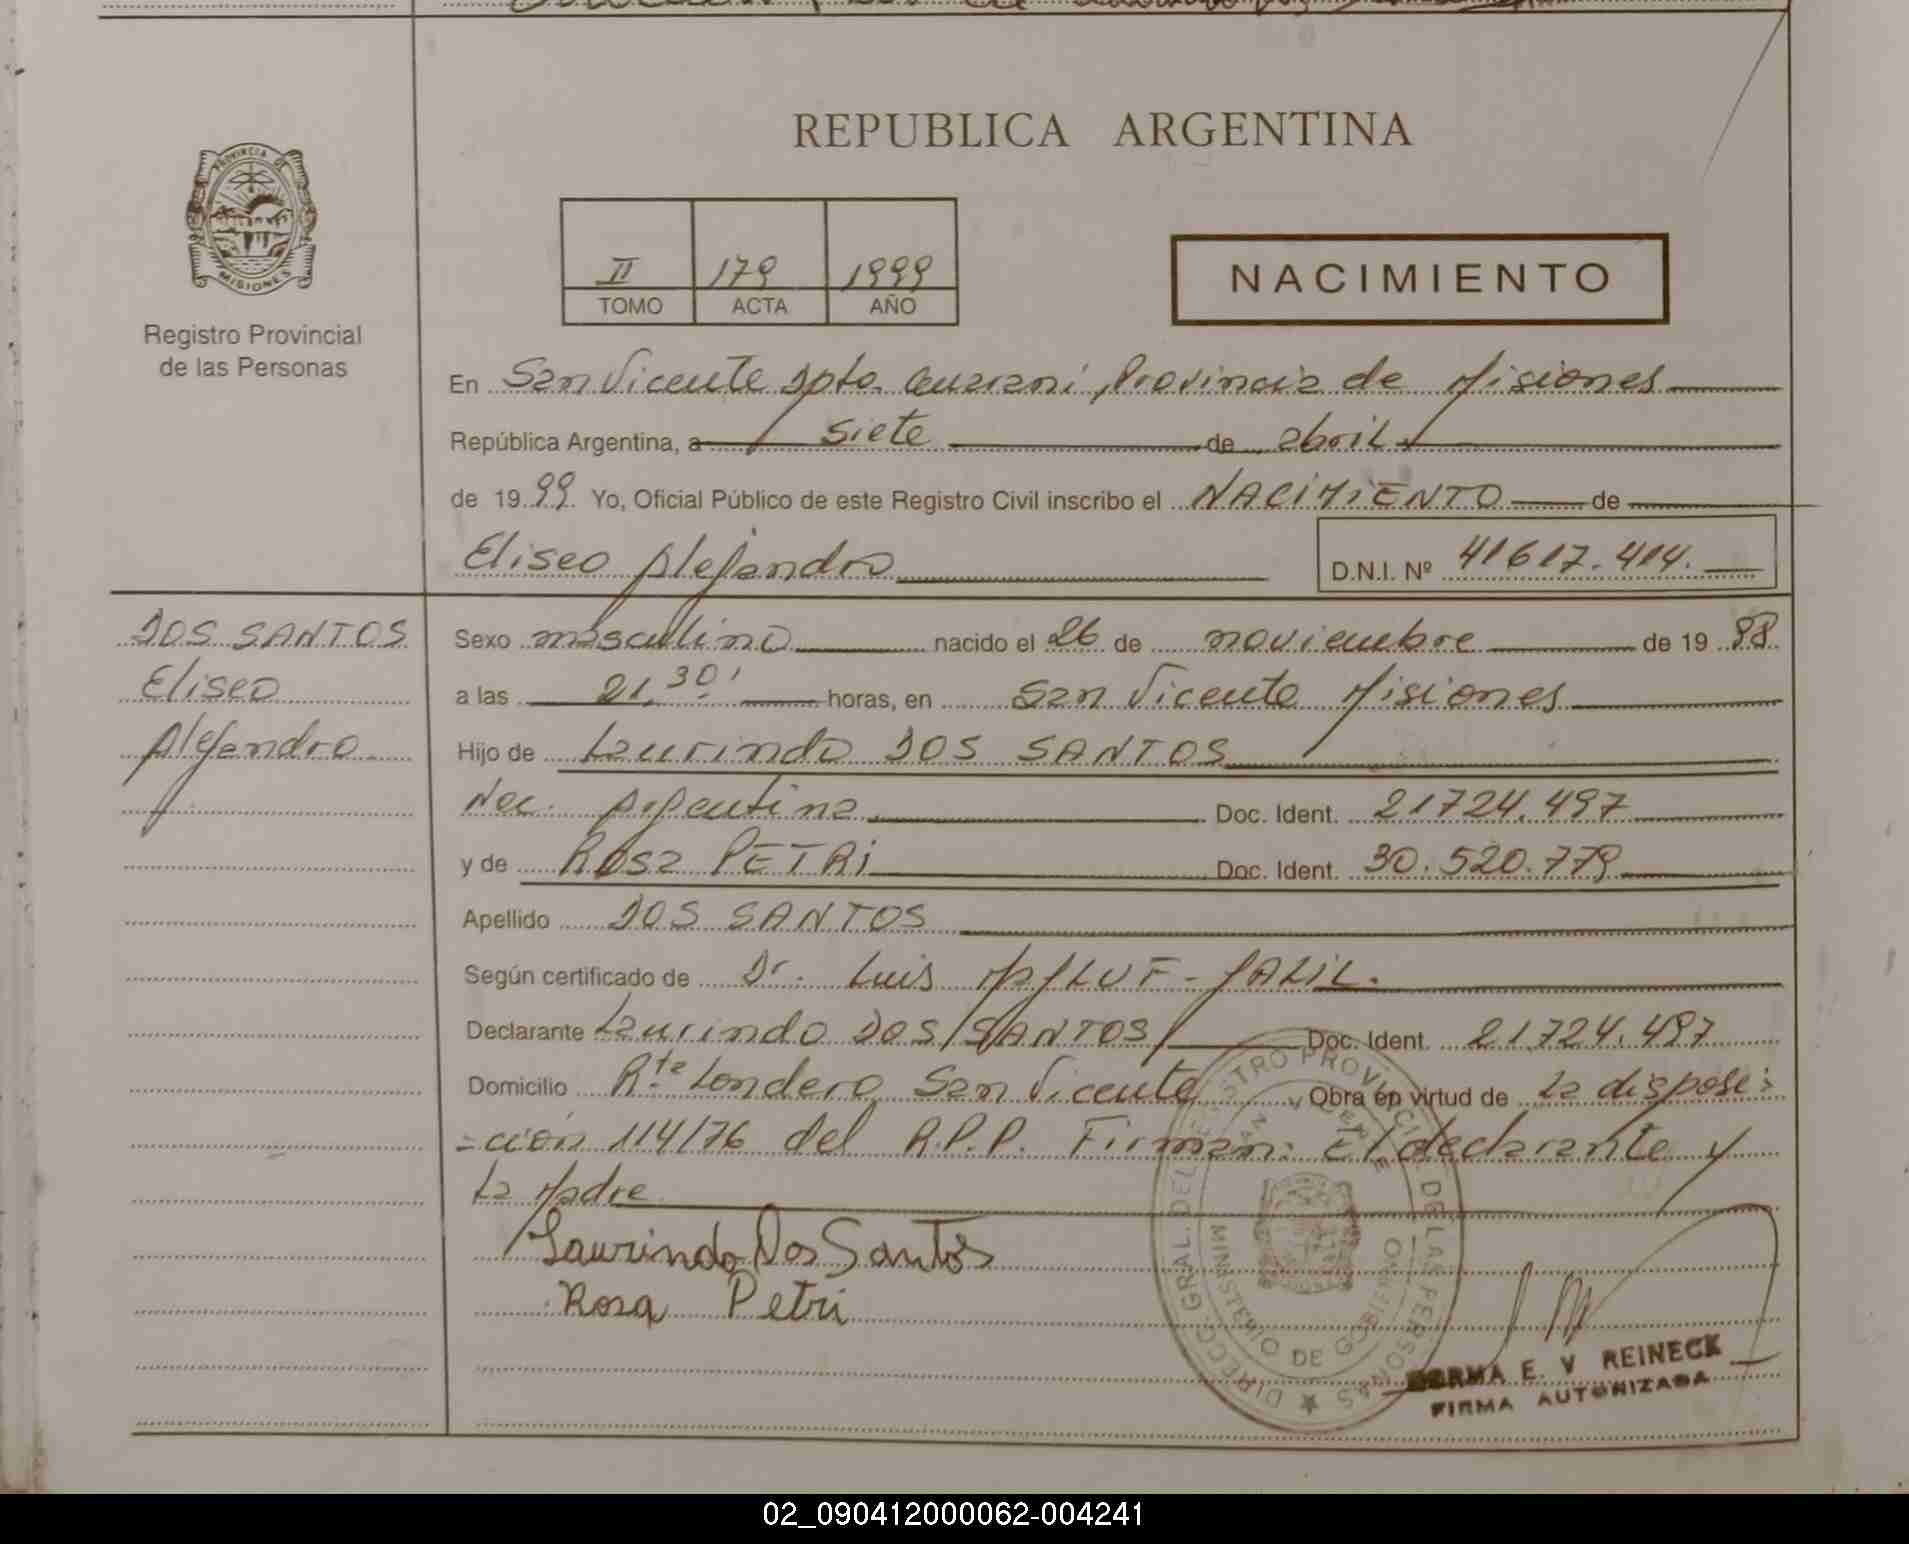 REPUBLICA ARGENTINA
PROVINCIA DE MISIONES
Registro Provincial
de las Personas
II 179 1999
TOMO ACTA AÑO
NACIMIENTO
En San Vicente Dpto. Guaraní, Provincia de Misiones
República Argentina, a siete de abril
de 1999. Yo, Oficial Público de este Registro Civil inscribo el NACIMIENTO de
Eliseo Alejandro D.N.I. Nº 41617.414.
DOS SANTOS
Eliseo
Alejandro
Sexo masculino nacido el 26 de noviembre de 1998.
a las 21,30' horas, en San Vicente Misiones
Hijo de Laurindo DOS SANTOS
Nac. Argentina Doc. Ident. 21724.497
y de Rosa PETRI Doc. Ident. 30.520.779
Apellido DOS SANTOS
Según certificado de Dr. Luis
Declarante Laurindo DOS SANTOS Doc. Ident. 21.724.497
Domicilio Rte Londero San Vicente Obra en virtud de La disposi=
=ción 114/76 del R.P.P. Firman: El declarante y
La Madre
Laurindo Dos Santos
Rosa Petri
DIRECC. GRAL. DEL REGISTRO PROVINCIAL DE LAS PERSONAS
SAN VICENTE
MINISTERIO DE GOBIERNO
NORMA E. V REINECK
FIRMA AUTORIZADA
02_090412000062-004241